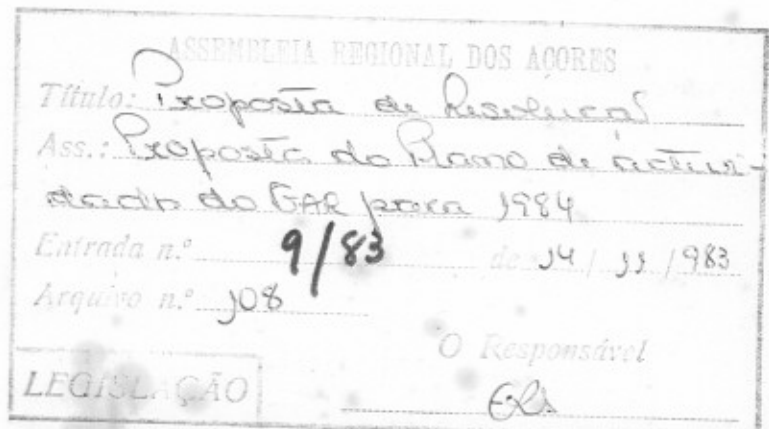 ASSEMBLEIA REGIONAL DOS AÇORES
Título: Proposta de Resolução
Ass.: Proposta do Plano de activi-
dades do GAR para 1984
Entrada n.º 9/83 de 14/11/983
Arquivo n.º 108
O Responsável
LEGISLAÇÃO